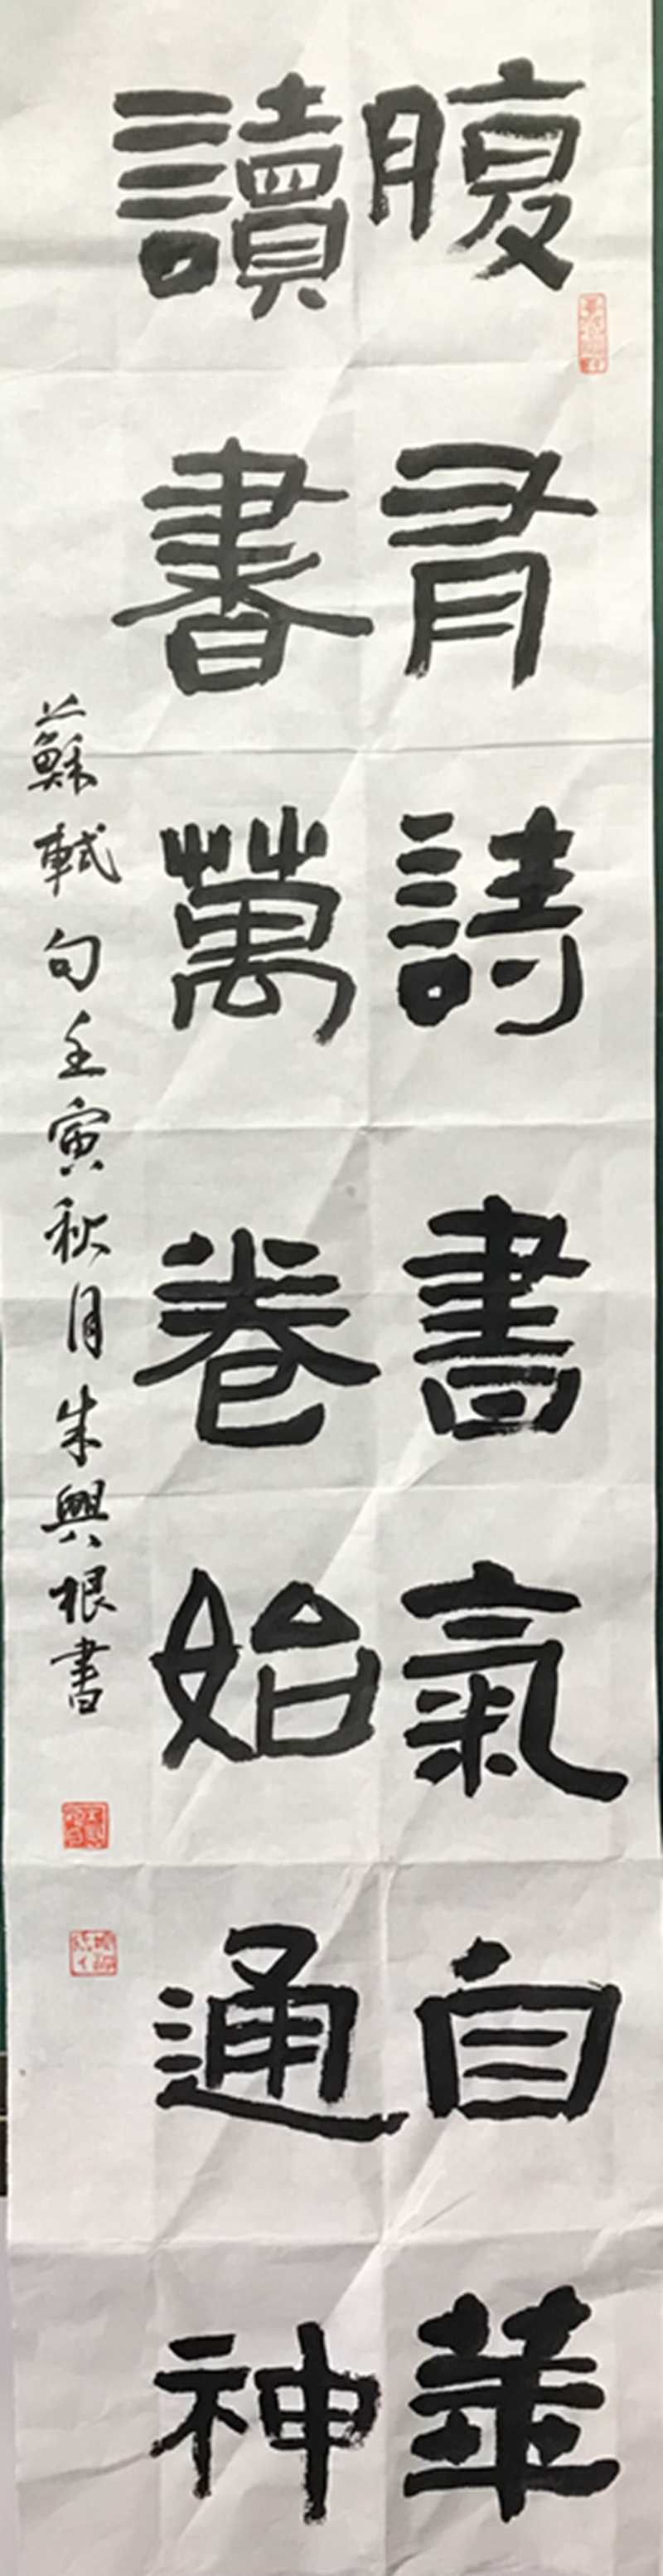 腹有詩書氣自華
讀書萬卷始通神
蘇軾句壬寅秋月朱興根書